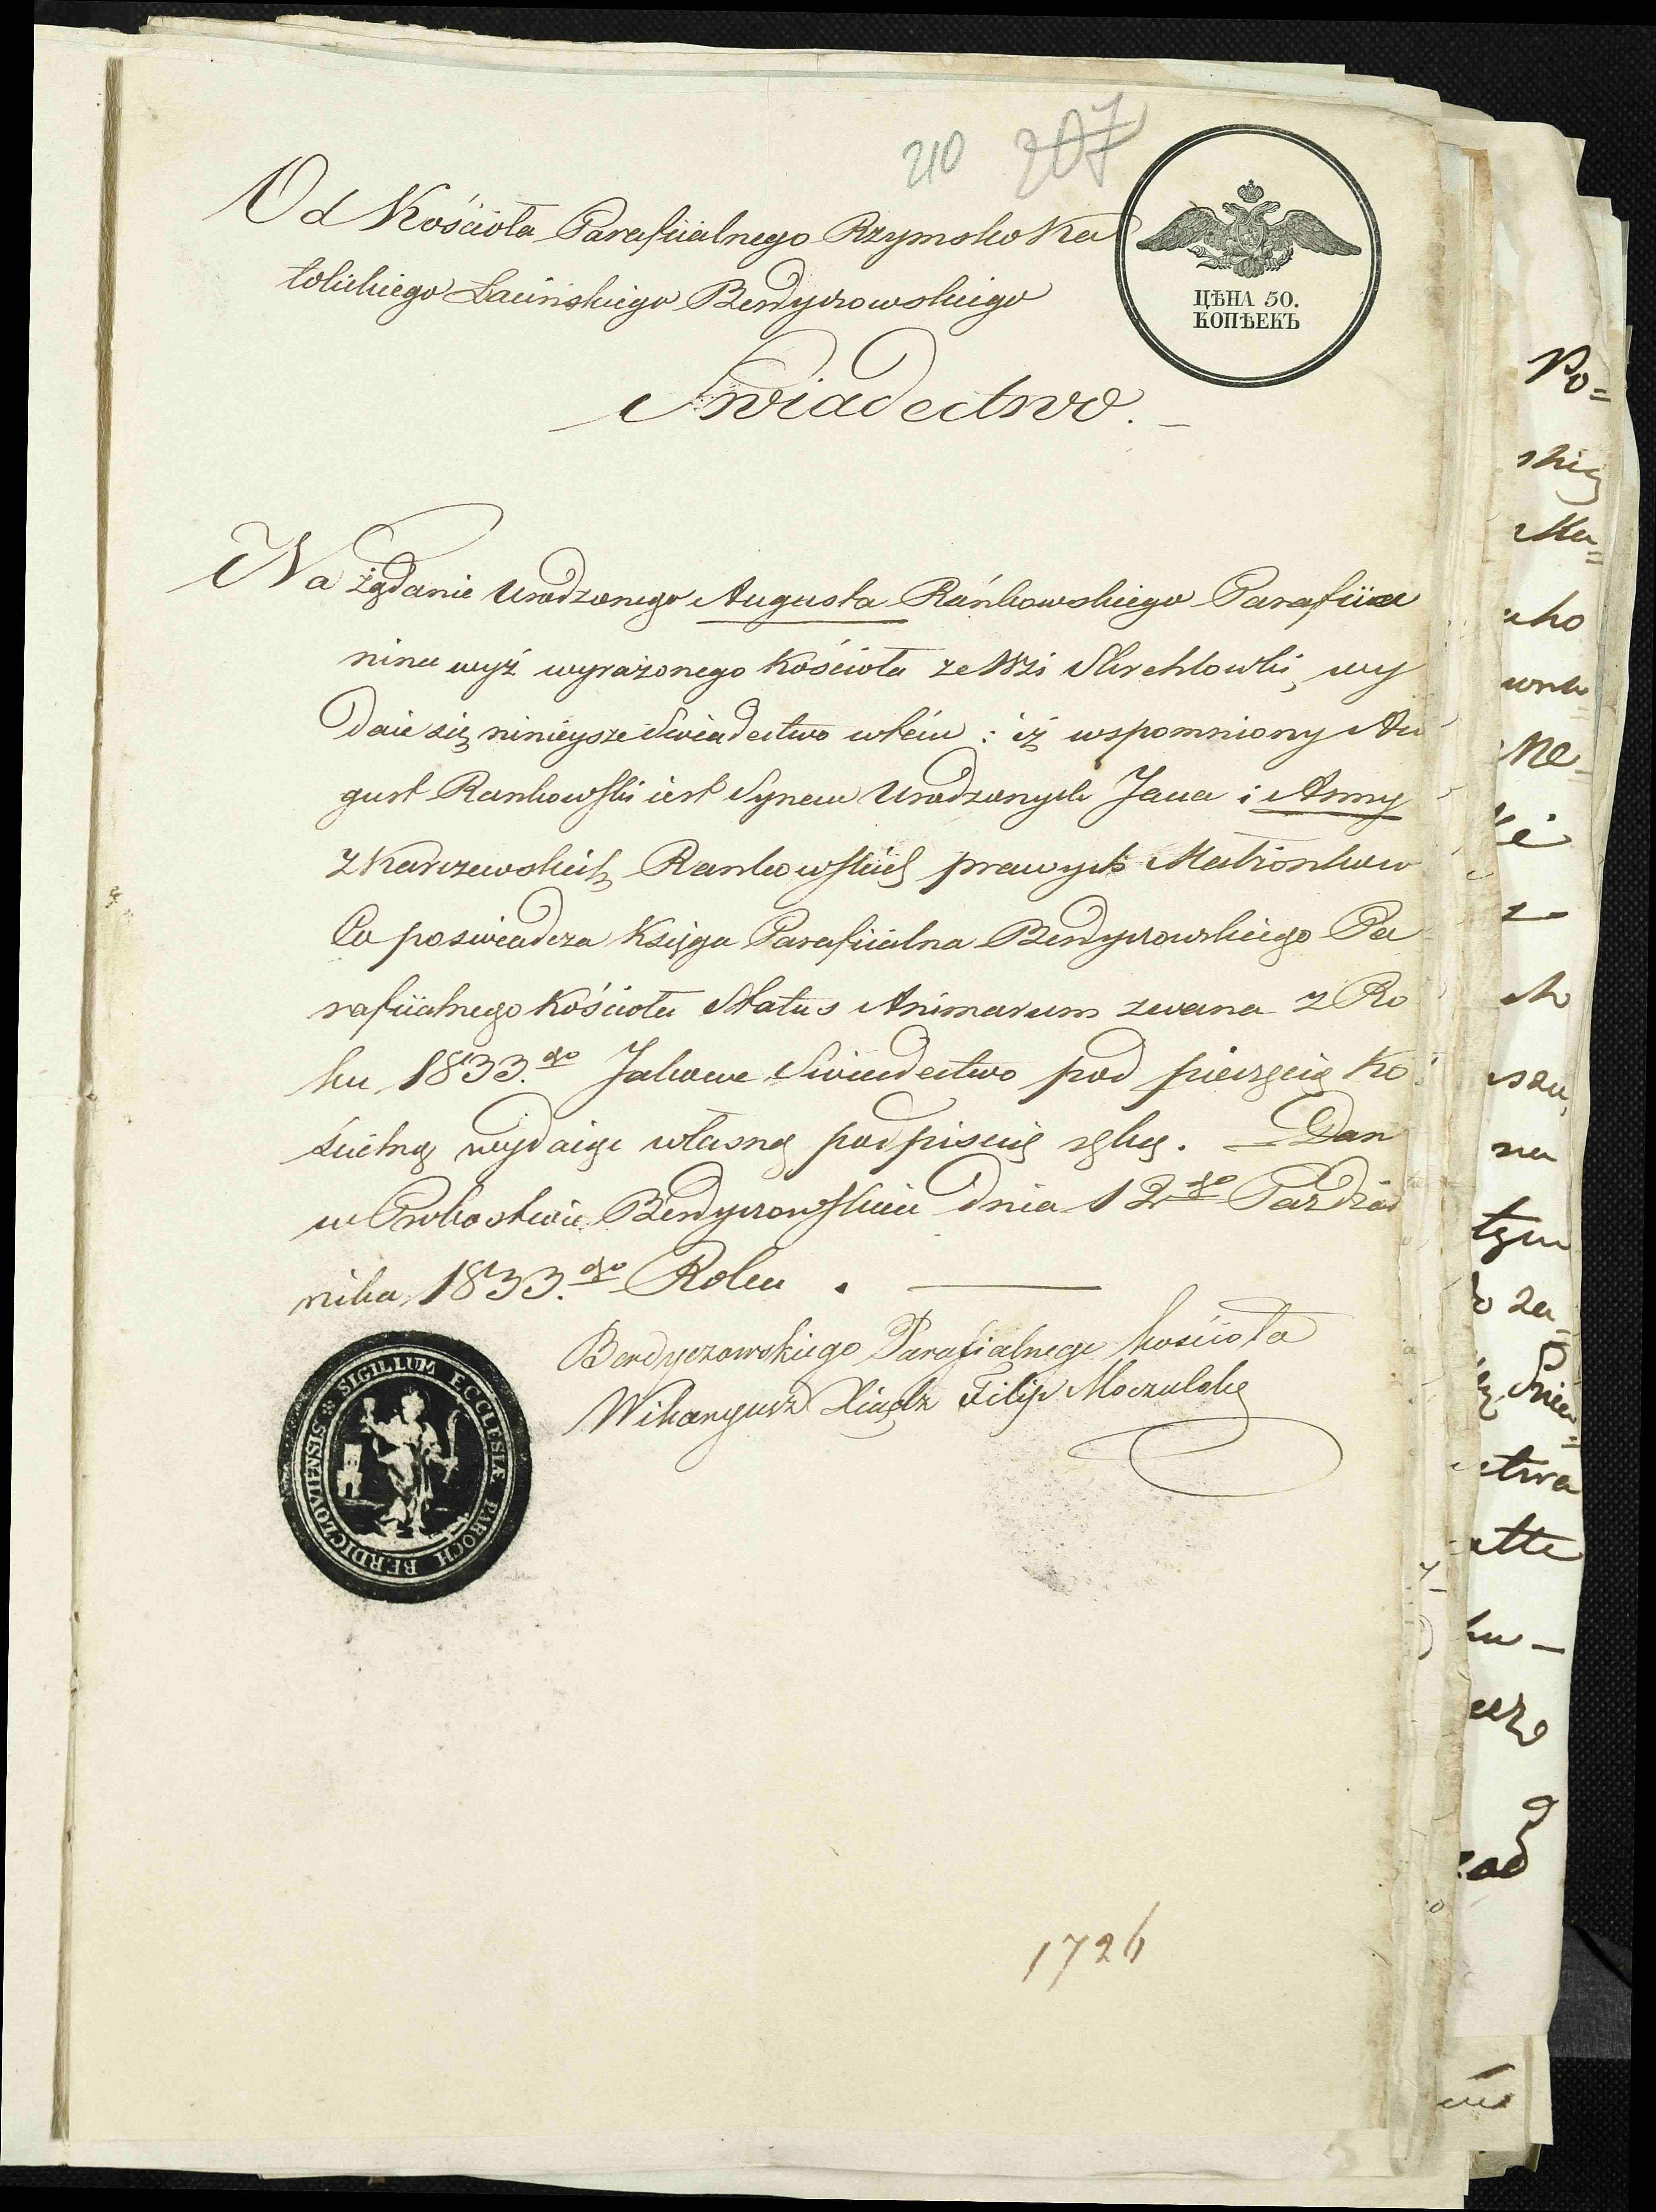 210 207
Od Kościoła Parafiialnego Rzymsko Ka
tolickiego Łacińskiego Berdyczowskiego
ЦѢНА 50.
КОПѢЕКЪ
Swiadectwo.
Na żądanie Urodzonego Augusta Rańkowskiego Parafiia
nina wyż wyrażonego Kościoła ze Wsi wy
daie się ninieysze Swiadectwo w tém : iż wspomniony Au
gust Rankowski iest Synem Urodzonych Jana i Anny
z Karczewskich Rankowskich prawych Małżonkow
Co poswiadcza Księga Parafiialna Berdyczowskiego Pa
rafiialnego Kościoła Status Animarum zwana z Ro
ku 1833.go Jakowe Swiadectwo pod pieczęcią Ko
scielną wydaiąc własną podpisuię ręką. Dan
w Probostwie Berdyczowskim dnia 12go Pazdzier
nika 1833.go Roku .
Berdyczowskiego Parafialnego kościoła
Wikaryusz Xiądz Filip Moczulski
SIGILLUM ECCLESIÆ PAROCH BERDICZOVIENSIS
1726